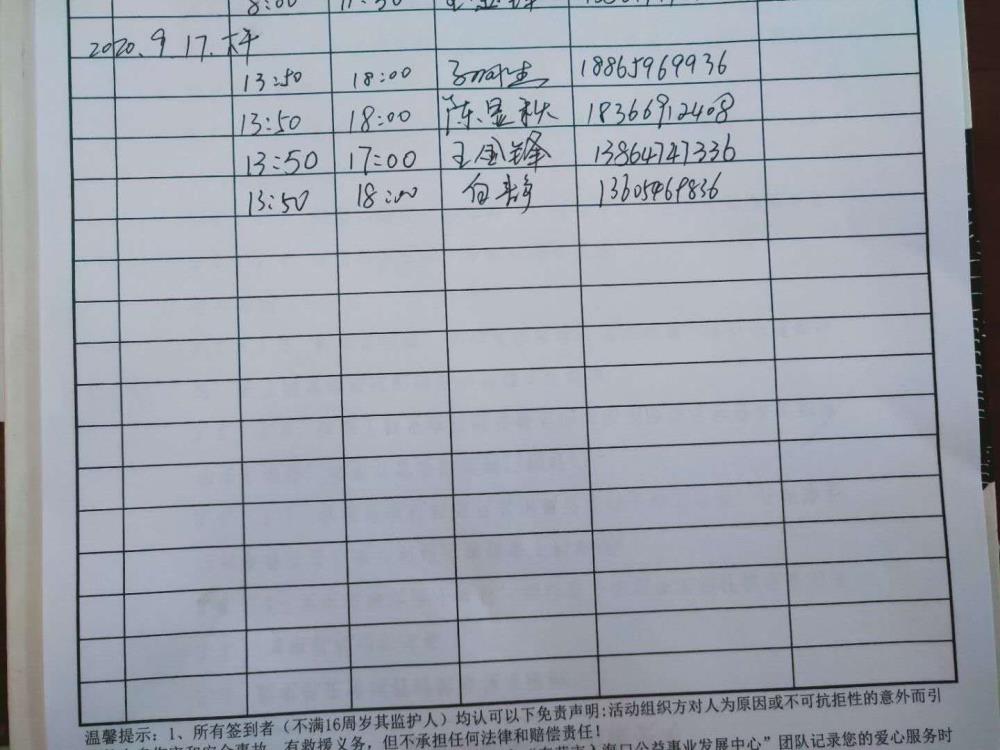 8:00 11:30
2020.9.17.
13:50 18:00 18865969936
13:50 18:00 陈显秋 18366912408
13:50 17:00 王金锋 13864747336
13:50 18:00 白静 13605469836
温馨提示: 1、所有签到者(不满16周岁其监护人)均认可以下免责声明:活动组织方对人为原因或不可抗拒性的意外而引
有救援义务,但不承担任何法律和赔偿责任!
入海口公益事业发展中心”团队记录您的爱心服务时